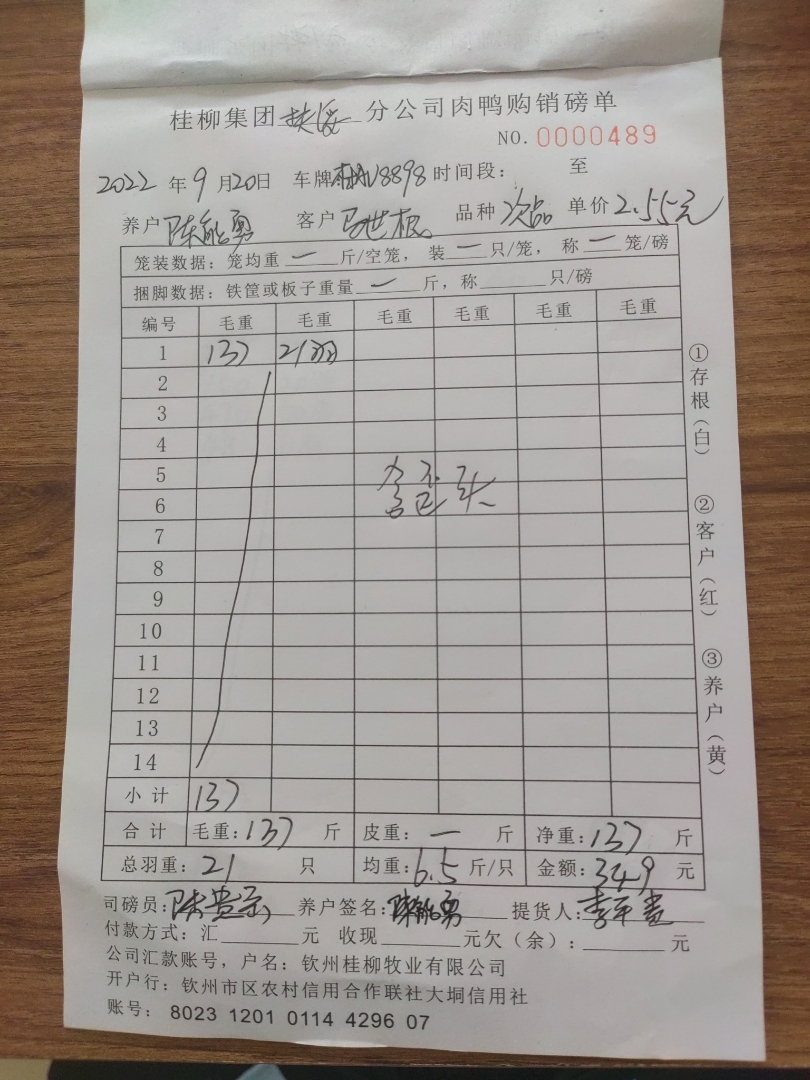 桂柳集团 分公司肉鸭购销磅单
NO. 0000489
2022 年 9 月 20 日 车牌 V8898 时间段: 至
养户 陈能勇 客户 马世板 品种 次品 单价 2.55元
笼装数据: 笼均重 一 斤/空笼, 装 一 只/笼, 称 一 笼/磅
捆脚数据: 铁筐或板子重量 一 斤, 称 只/磅
编号 毛重 毛重 毛重 毛重 毛重 毛重
1 137 21羽
2
3
4
5
6
7
8
9
10
11
12
13
14
小计 137
合计 毛重: 137 斤 皮重: 一 斤 净重: 137 斤
总羽重: 21 只 均重: 6.5 斤/只 金额: 349 元
司磅员: 陈贵 养户签名: 陈能勇 提货人: 李平贵
付款方式: 汇 元 收现 元欠(余): 元
公司汇款账号, 户名: 钦州桂柳牧业有限公司
开户行: 钦州市区农村信用合作联社大垌信用社
账号: 8023 1201 0114 4296 07
①存根(白)
②客户(红)
③养户(黄)